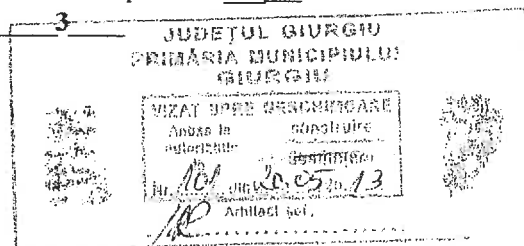 3
JUDEȚUL GIURGIU
PRIMĂRIA MUNICIPIULUI
GIURGIU
VIZAT SPRE NESCHIMBARE
Anexa la construire
autorizația
Nr. 101 din 20.05.2013
Arhitect șef,